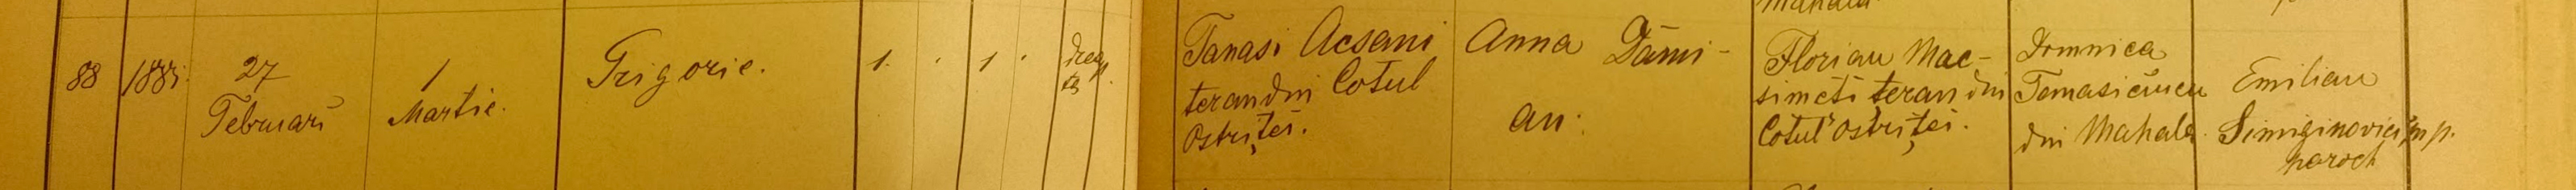 88
1885.
27
Februari
1
Martie.
Grigorie.
1.
1
dreap
tă
Tanasi Acsani
teran din Cotul
Ostriței.
Anna Dami-
an.
Florian Mac-
simeti teran din
Cotul Ostriței.
Domnica
Tomasiciucu
din Mahala
Emilian
Simiginovici m.p.
paroch